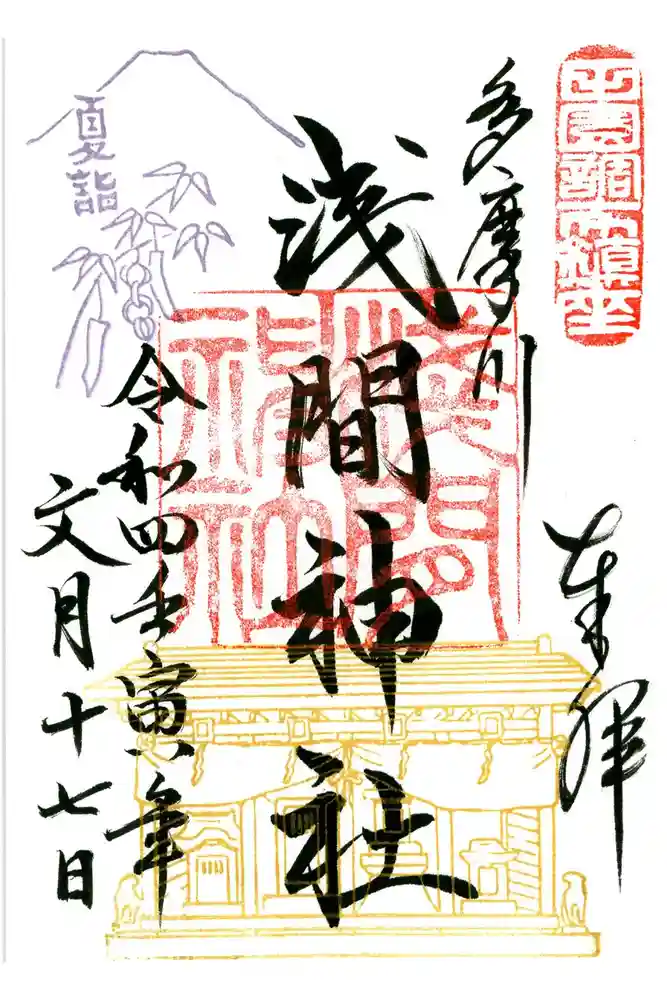 調布鎮座
奉拝
多摩川
浅間神社
淺間神社
令和四壬寅年
文月十七日
夏詣